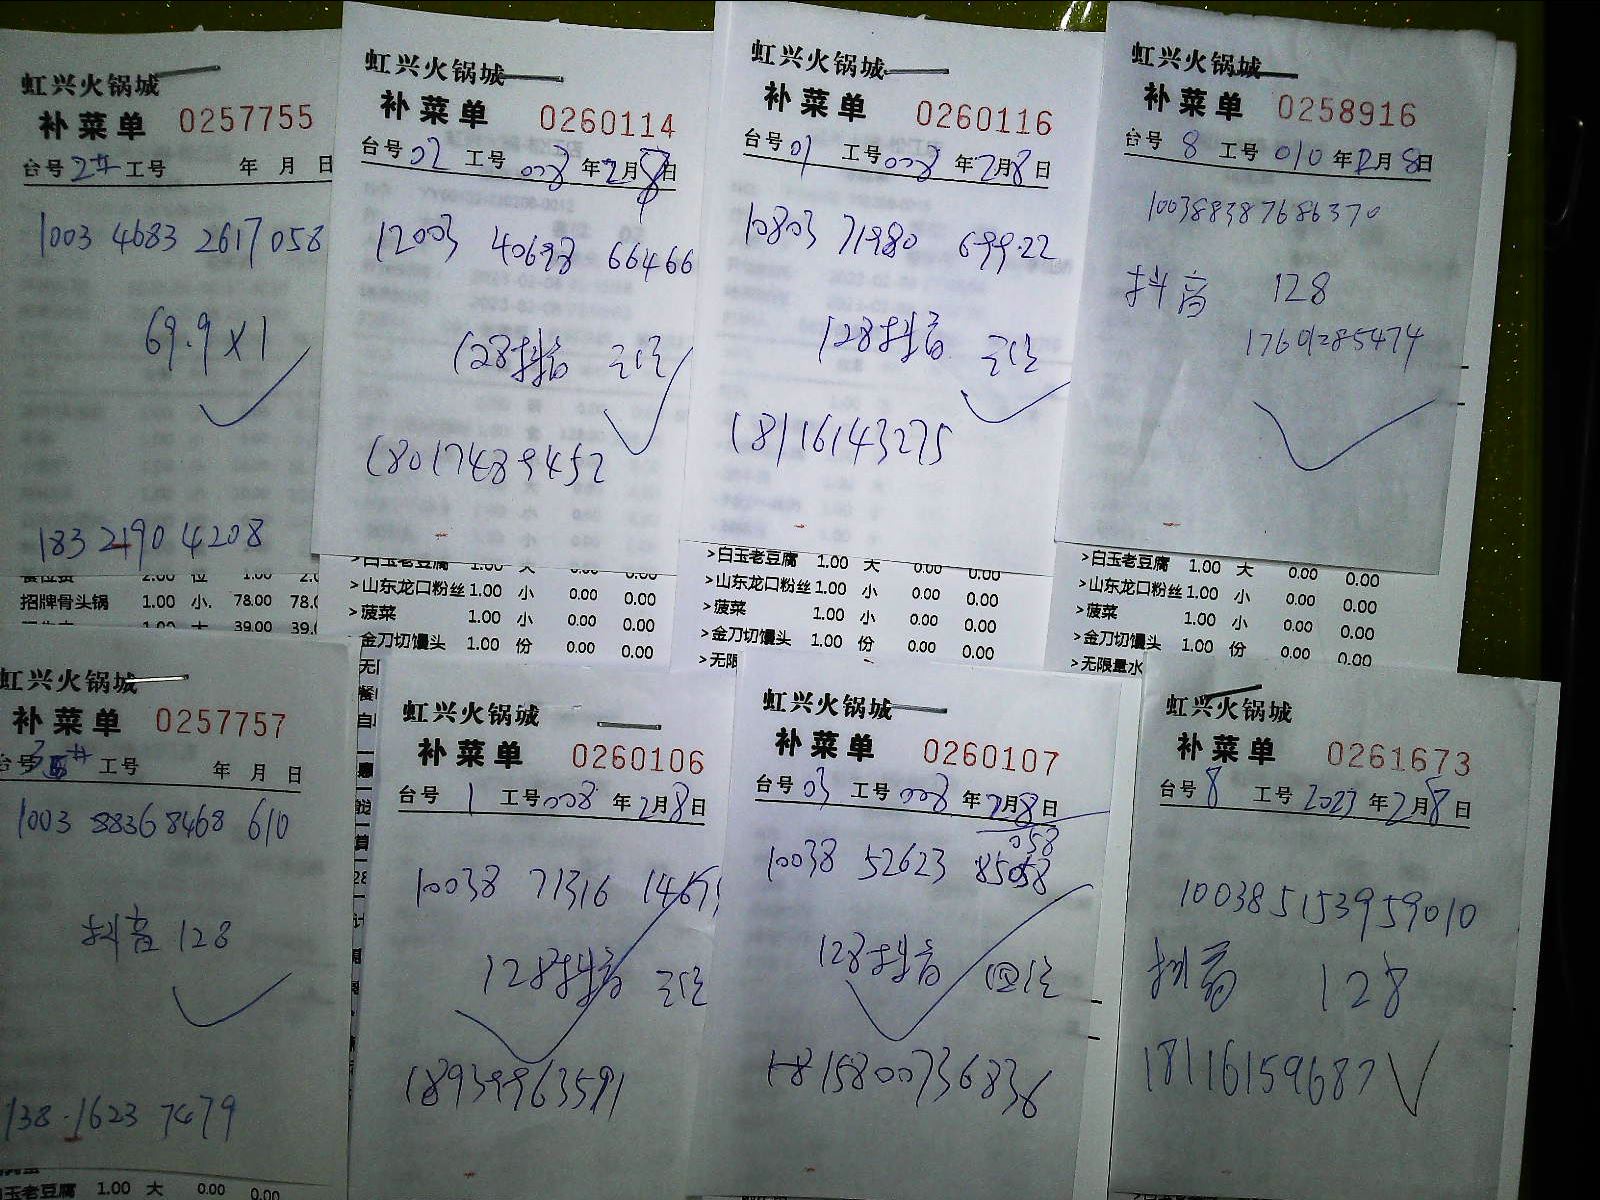 虹兴火锅城
补菜单 0257755
台号 2# 工号 年 月 日
1003 4683 2617 058
69.9 X 1
183 2190 4208
餐位费 2.00 位 1.00 2.0
招牌骨头锅 1.00 小. 78.00 78.0
1.00 大 39.00 39.0
虹兴火锅城
补菜单 0260114
台号 02 工号 008 年 2月8日
12003 40698 66466
128抖音 三位
18017489452
>白玉老豆腐 1.00 大 0.00 0.00
>山东龙口粉丝 1.00 小 0.00 0.00
>菠菜 1.00 小 0.00 0.00
>金刀切馒头 1.00 份 0.00 0.00
虹兴火锅城
补菜单 0260116
台号 01 工号 008 年 2月8日
10803 71980 699.22
128抖音 三位
18116143275
>白玉老豆腐 1.00 大 0.00 0.00
>山东龙口粉丝 1.00 小 0.00 0.00
>菠菜 1.00 小 0.00 0.00
>金刀切馒头 1.00 份 0.00 0.00
>无限
虹兴火锅城
补菜单 0258916
台号 8 工号 010 年 2月8日
100388387686370
抖音 128
17601285474
>白玉老豆腐 1.00 大 0.00 0.00
>山东龙口粉丝 1.00 小 0.00 0.00
>菠菜 1.00 小 0.00 0.00
>金刀切馒头 1.00 份 0.00 0.00
>无限量水
虹兴火锅城
补菜单 0257757
台号 工号 年 月 日
1003 88368468 610
抖音 128
138-1623 7479
白玉老豆腐 1.00 大 0.00 0.00
虹兴火锅城
补菜单 0260106
台号 1 工号 008 年 2月8日
10038 71316
128抖音 三位
18939963591
虹兴火锅城
补菜单 0260107
台号 03 工号 008 年 2月8日
058
10038 52623 85058
128抖音 四位
15800736836
虹兴火锅城
补菜单 0261673
台号 8 工号 2023 年 2月8日
100385153959010
抖音 128
18116159687